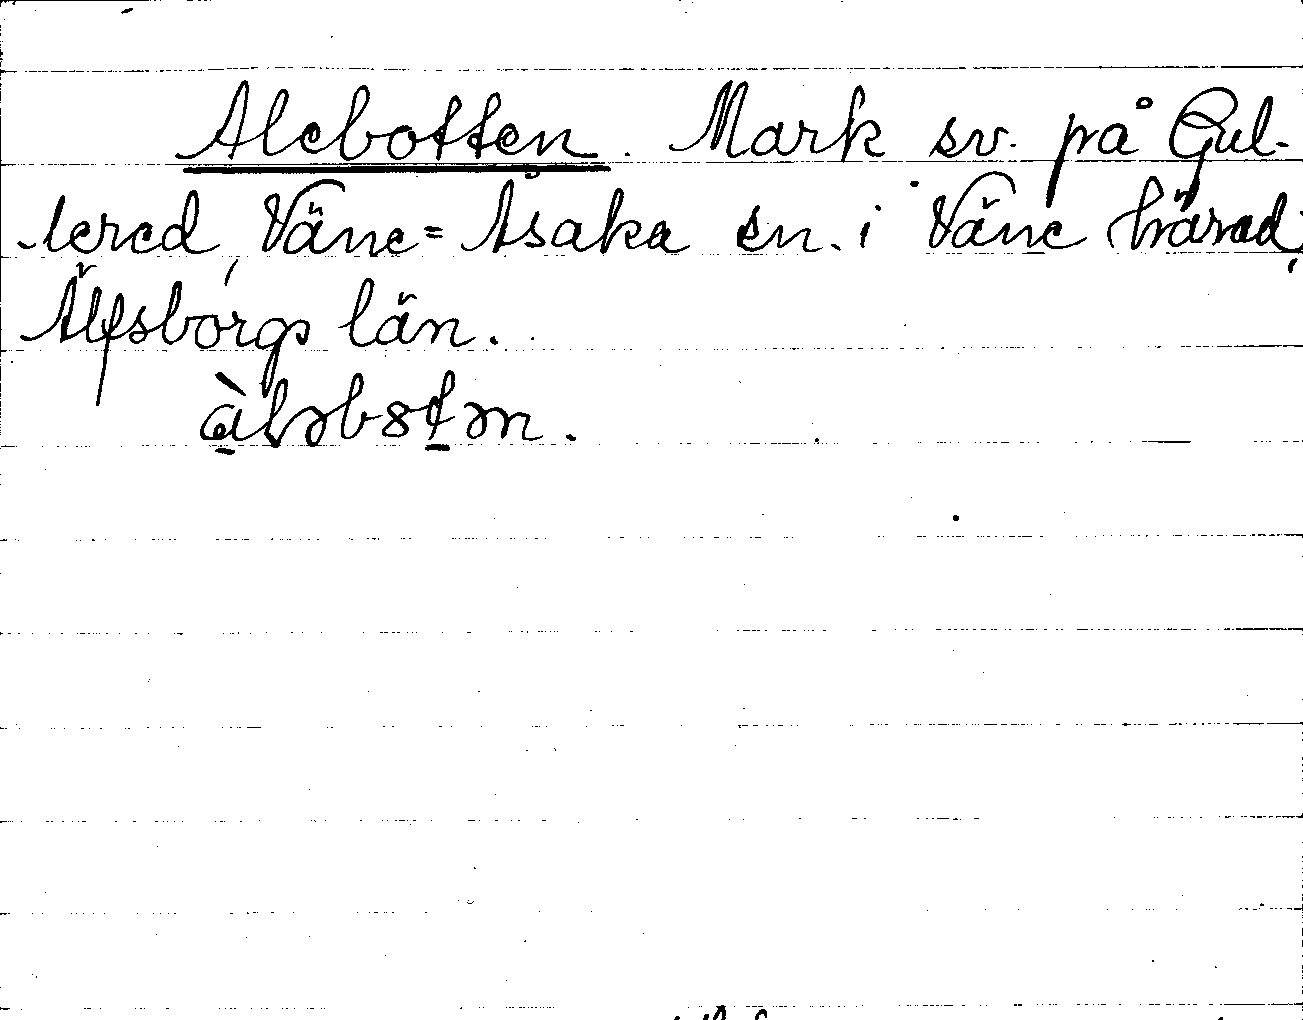 Alebotten. Mark sv. på Gul-
lered, Väne=Åsaka sn. i Väne härad,
Älfsborgs län.